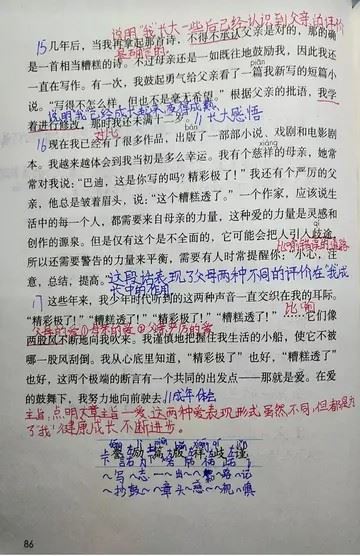 说明"我"长大一些后已经认识到父亲的评价
是正确的。
15 几年后,当我再拿起那首诗,不得不承认父亲是对的,那的确
是一首相当糟糕的诗。不过母亲还是一如既往地鼓励我,因此我还
一直在写作。有一次,我鼓起勇气给父亲看了一篇我新写的短篇小
说。"写得不怎么样,但也不是毫无希望。"根据父亲的批语,我学
着进行修改,那时我还未满十二岁。 11 长大感悟
对比
bǎn
16 现在我已经有了很多作品,出版了一部部小说、戏剧和电影剧
本。我越来越体会到我当初是多么幸运。我有个慈祥的母亲,她常
xiáng
常对我说:"巴迪,这是你写的吗?精彩极了!"我还有个严厉的父
亲,他总是皱着眉头,说:"这个糟糕透了。"一个作家,应该说生
活中的每一个人,都需要来自母亲的力量,这种爱的力量是灵感和
创作的源泉。但是仅有这个是不全面的,它可能会把人引入歧途。
所以还需要警告的力量来平衡,需要有人时常提醒你:"小心,注
意,总结,提高。"这段话表现了父母两种不同的评价在"我成
长中的作用
17 这些年来,我少年时代听到的这两种声音一直交织在我的耳际。
比喻
"精彩极了!""糟糕透了!""精彩极了!""糟糕透了!"……它们像
两股风不断地向我吹来。我谨慎地把握住我生活的小船,使它不被
哪一股风刮倒。我从心底里知道,"精彩极了"也好,"糟糕透了"
也好,这两个极端的断言有一个共同的出发点——那就是爱。在爱
的鼓舞下,我努力地向前驶去。 11 成年体会
主旨:点明文章主旨——爱,这两种爱表现形式虽然不同,但都是为
了"我"健康成长、不断进步。
誊 励 篇 版 祥 歧 谨
~写 ~志 ~出 ~路 ~记
~抄 鼓~ ~章 ~头 慈~ ~视 ~慎
86